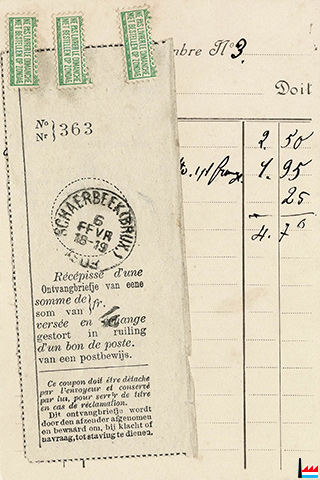 NE PAS LIVRER LE DIMANCHE
NIET BESTELLEN OP ZONDAG
NE PAS LIVRER LE DIMANCHE
NIET BESTELLEN OP ZONDAG
NE PAS LIVRER LE DIMANCHE
NIET BESTELLEN OP ZONDAG
mbre No 3.
Doit
No
Nr 363
2. 50
4. 95
25
SCHAERBEEK (BRUX.)
6
FEVR
18-19
Récépissé d'une
Ontvangbriefje van eene
somme de
som van fr.
versée en échange
gestort in ruiling
d'un bon de poste.
van een postbewijs.
Ce coupon doit être détaché
par l'envoyeur et conservé
par lui, pour servir de titre
en cas de réclamation.
Dit ontvangbriefje wordt
door den afzender afgenomen
en bewaard om, bij klacht of
navraag, tot staving te dienen.